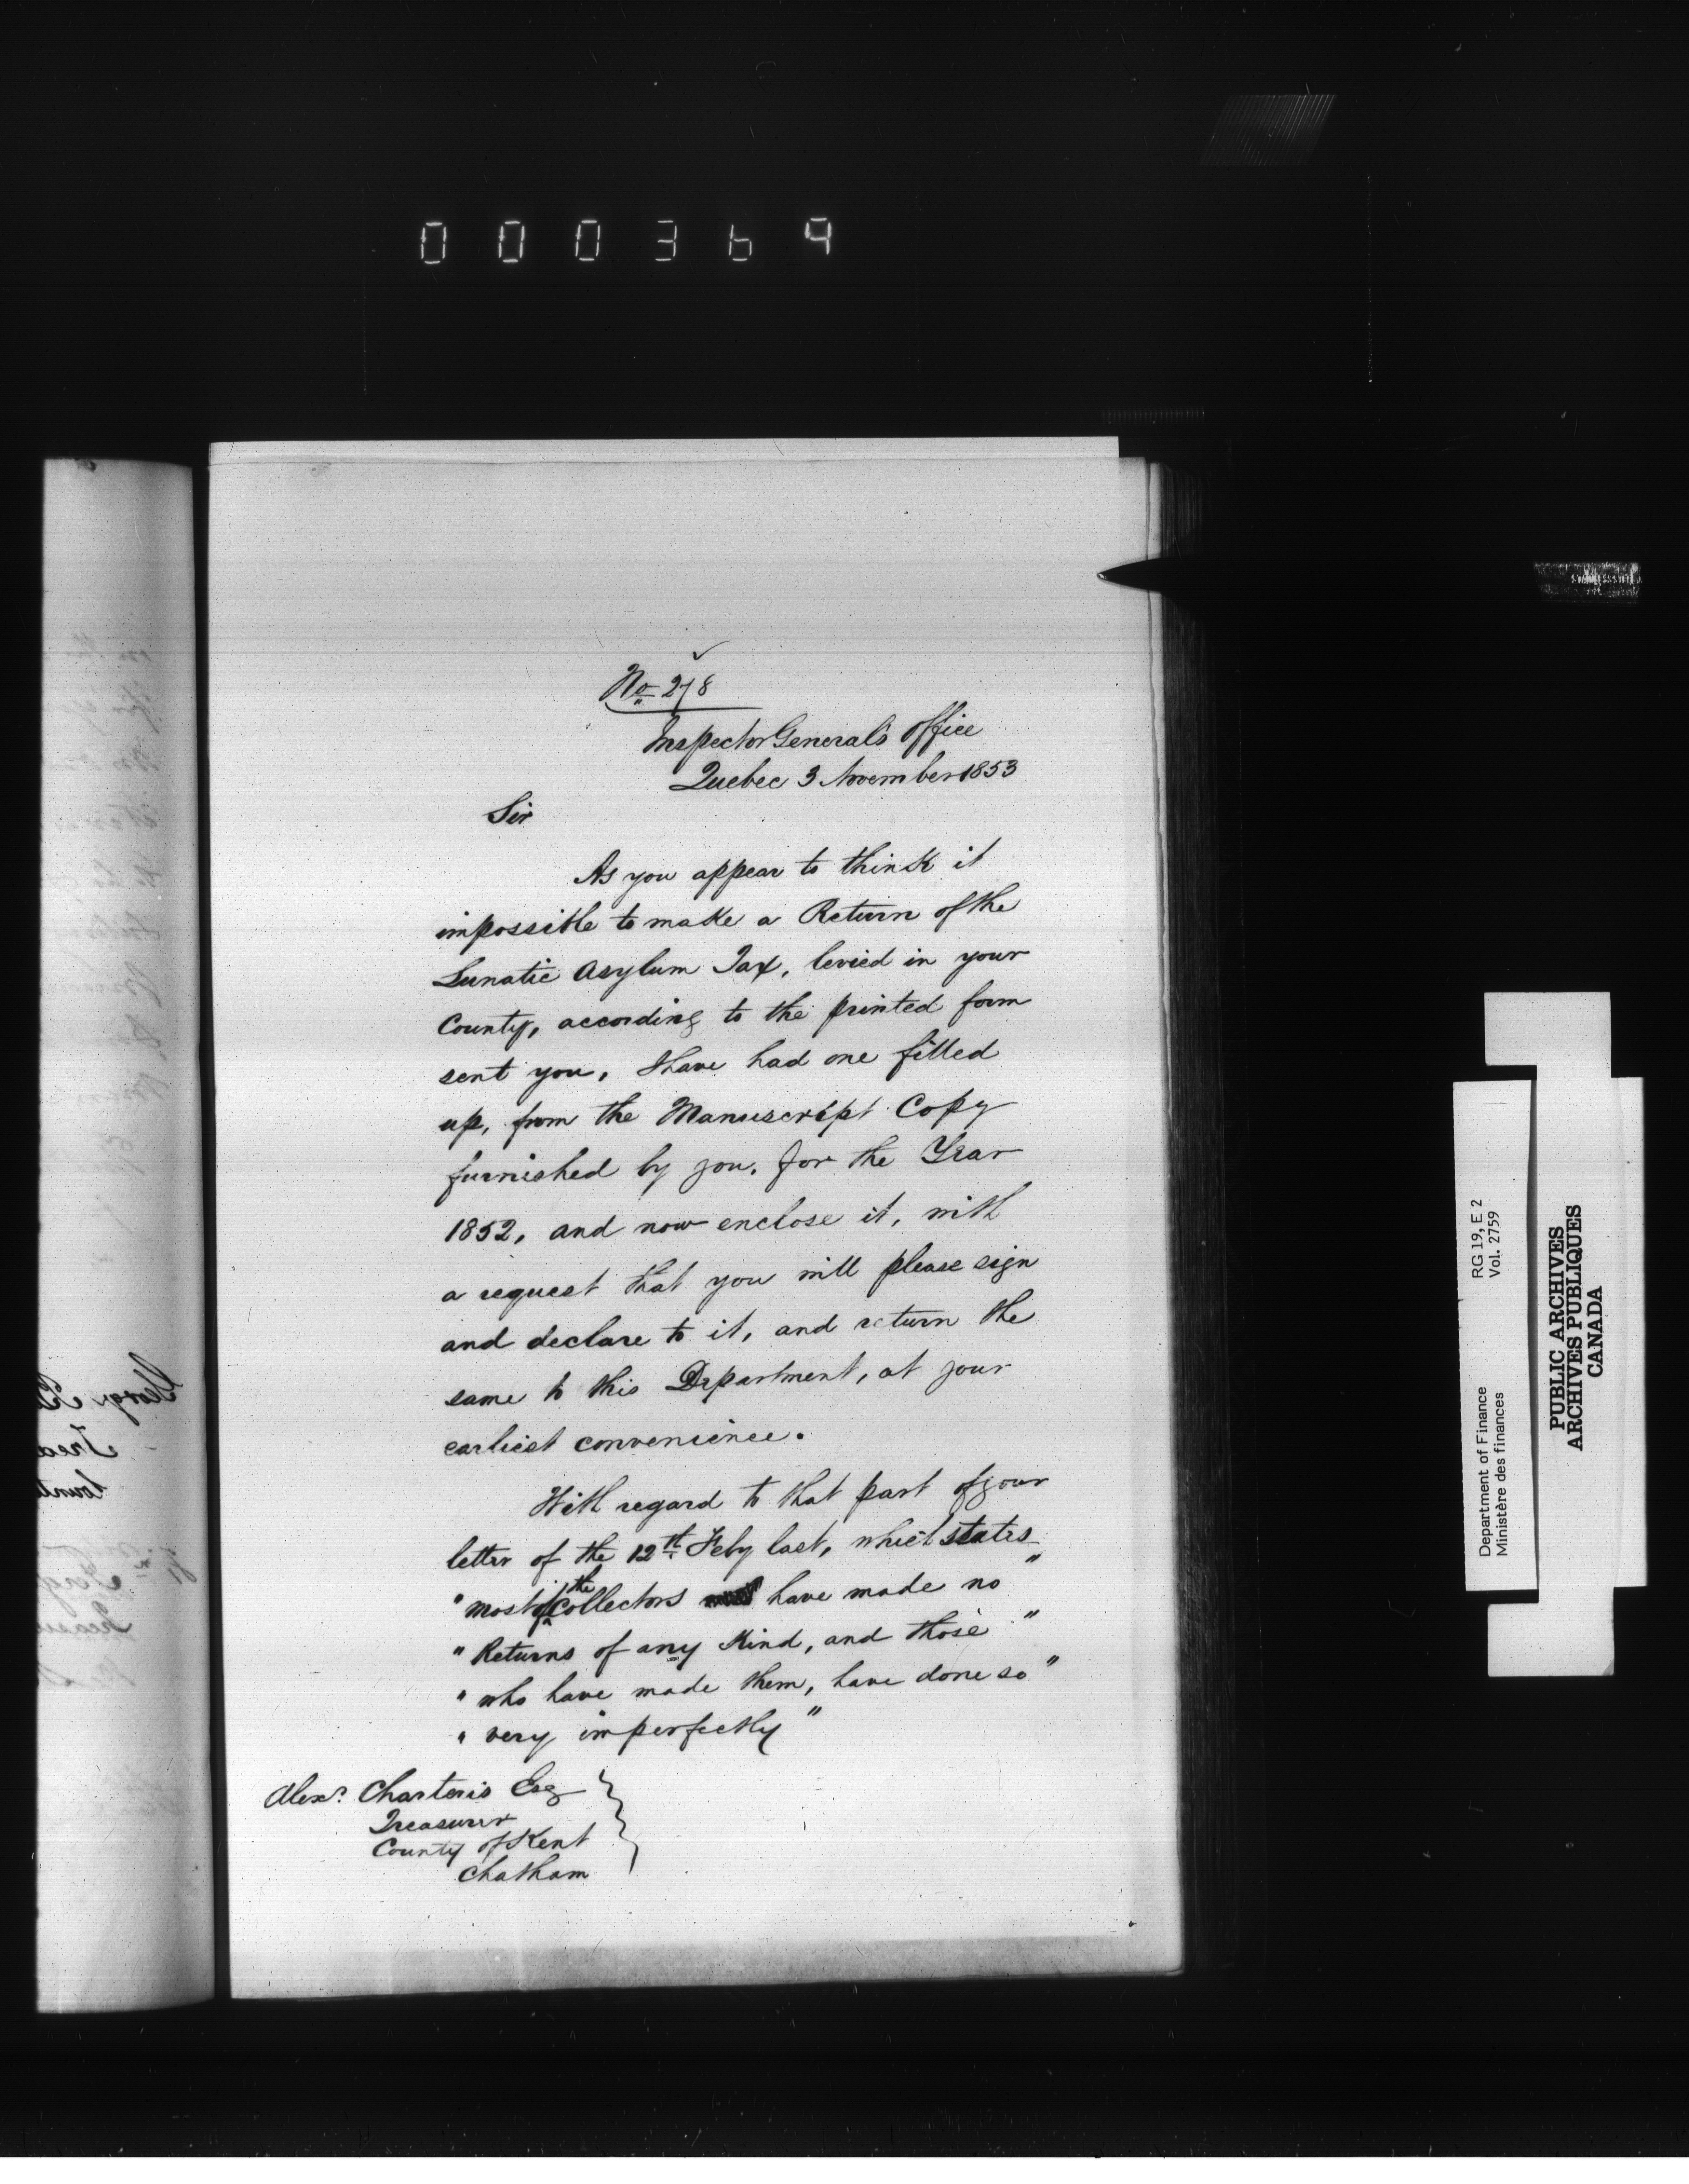 000369
No 278
Inspector General's Office
Quebec 3 November 1853
Sir
As you appear to think it
impossible to make a Return of the
Lunatic Asylum Tax, levied in your
County, according to the printed form
sent you, I have had one filled
up, from the Manuscript Copy
furnished by you, for the Year
1852, and now enclose it, with
a request that you will please sign
and declare to it, and return the
same to this Department, at your
earliest convenience.
With regard to that part of your
letter of the 12th Feby last, which states
"most of the Collectors have made no "
" Returns of any Kind, and those "
" who have made them, have done so "
" very imperfectly "
Alexr. Charteris Esq
Treasurer
County of Kent
Chatham
Department of Finance RG 19, E 2
Ministère des finances Vol. 2759
PUBLIC ARCHIVES
ARCHIVES PUBLIQUES
CANADA